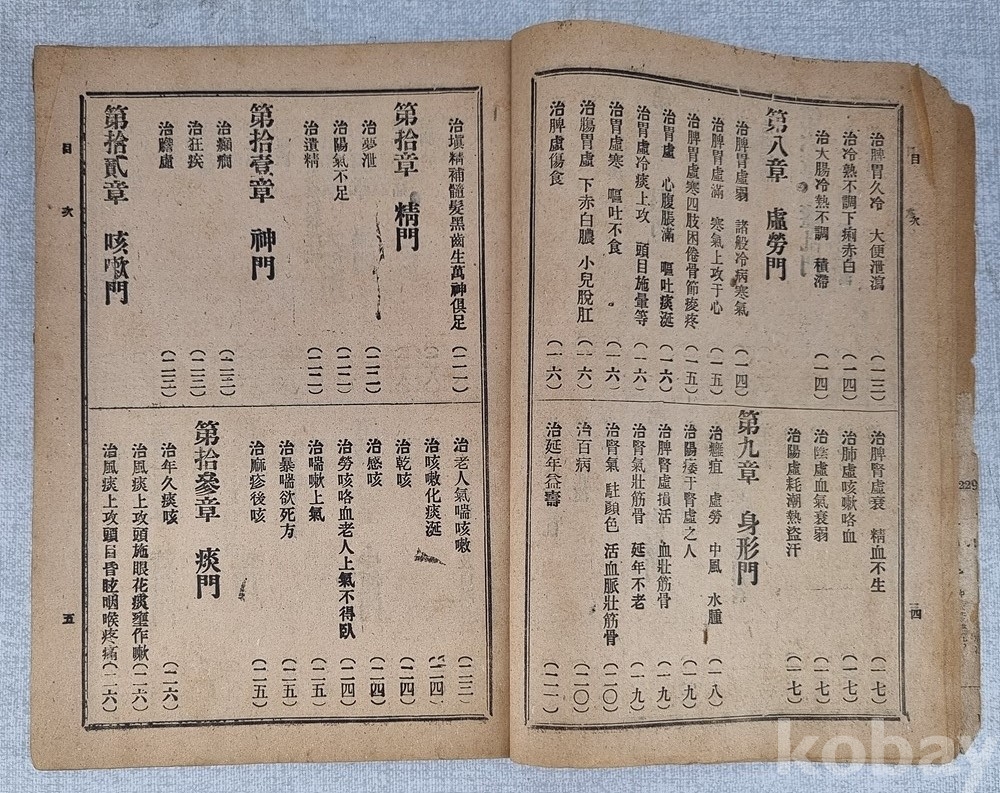 目次
治脾胃久冷 大便泄瀉 (一三)
治冷熱不調下痢赤白 (一四)
治大腸冷熱不調 積滯 (一四)
第八章 虛勞門
治脾胃虛弱 諸般冷病寒氣 (一四)
治脾胃虛滿 寒氣上攻于心 (一五)
治脾胃虛寒四肢困倦骨節痠疼 (一五)
治胃虛 心腹脹滿 嘔吐痰涎 (一六)
治胃虛冷痰上攻 頭目施暈等 (一六)
治胃虛寒 嘔吐不食 (一六)
治腸胃虛 下赤白膿 小兒脫肛 (一六)
治脾虛傷食 (一六)
治脾腎虛衰 精血不生 (一七)
治肺虛咳嗽咯血 (一七)
治陰虛血氣衰弱 (一七)
治陽虛耗潮熱盜汗 (一七)
第九章 身形門
治癰疽 虛勞 中風 水腫 (一八)
治陽痿于腎虛之人 (一九)
治脾腎虛損活 血壯筋骨 (一九)
治腎氣壯筋骨 延年不老 (一九)
治腎氣 駐顏色 活血脈壯筋骨 (二〇)
治百病 (二〇)
治延年益壽 (二一)
四
治塡精補髓髮黑齒生萬神俱足 (二一)
第拾章 精門
治夢泄 (二二)
治陽氣不足 (二二)
治遺精 (二二)
第拾壹章 神門
治癲癎 (二三)
治狂疾 (二三)
治膽虛 (二三)
第拾貳章 咳嗽門
治老人氣喘咳嗽 (二三)
治咳嗽化痰涎 (二四)
治乾咳 (二四)
治感咳 (二四)
治勞咳咯血老人上氣不得臥 (二四)
治喘嗽上氣 (二五)
治暴喘欲死方 (二五)
治麻疹後咳 (二五)
第拾參章 痰門
治年久痰咳 (二六)
治風痰上攻頭施眼花痰壅作嗽 (二六)
治風痰上攻頭目昏眩咽喉疼痛 (二六)
目次
五
229
kobay